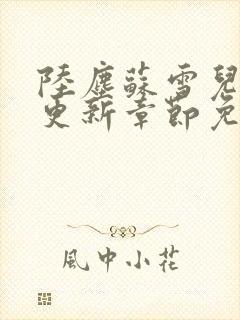 陸塵蘇雪兒
更新章節免
風中小花